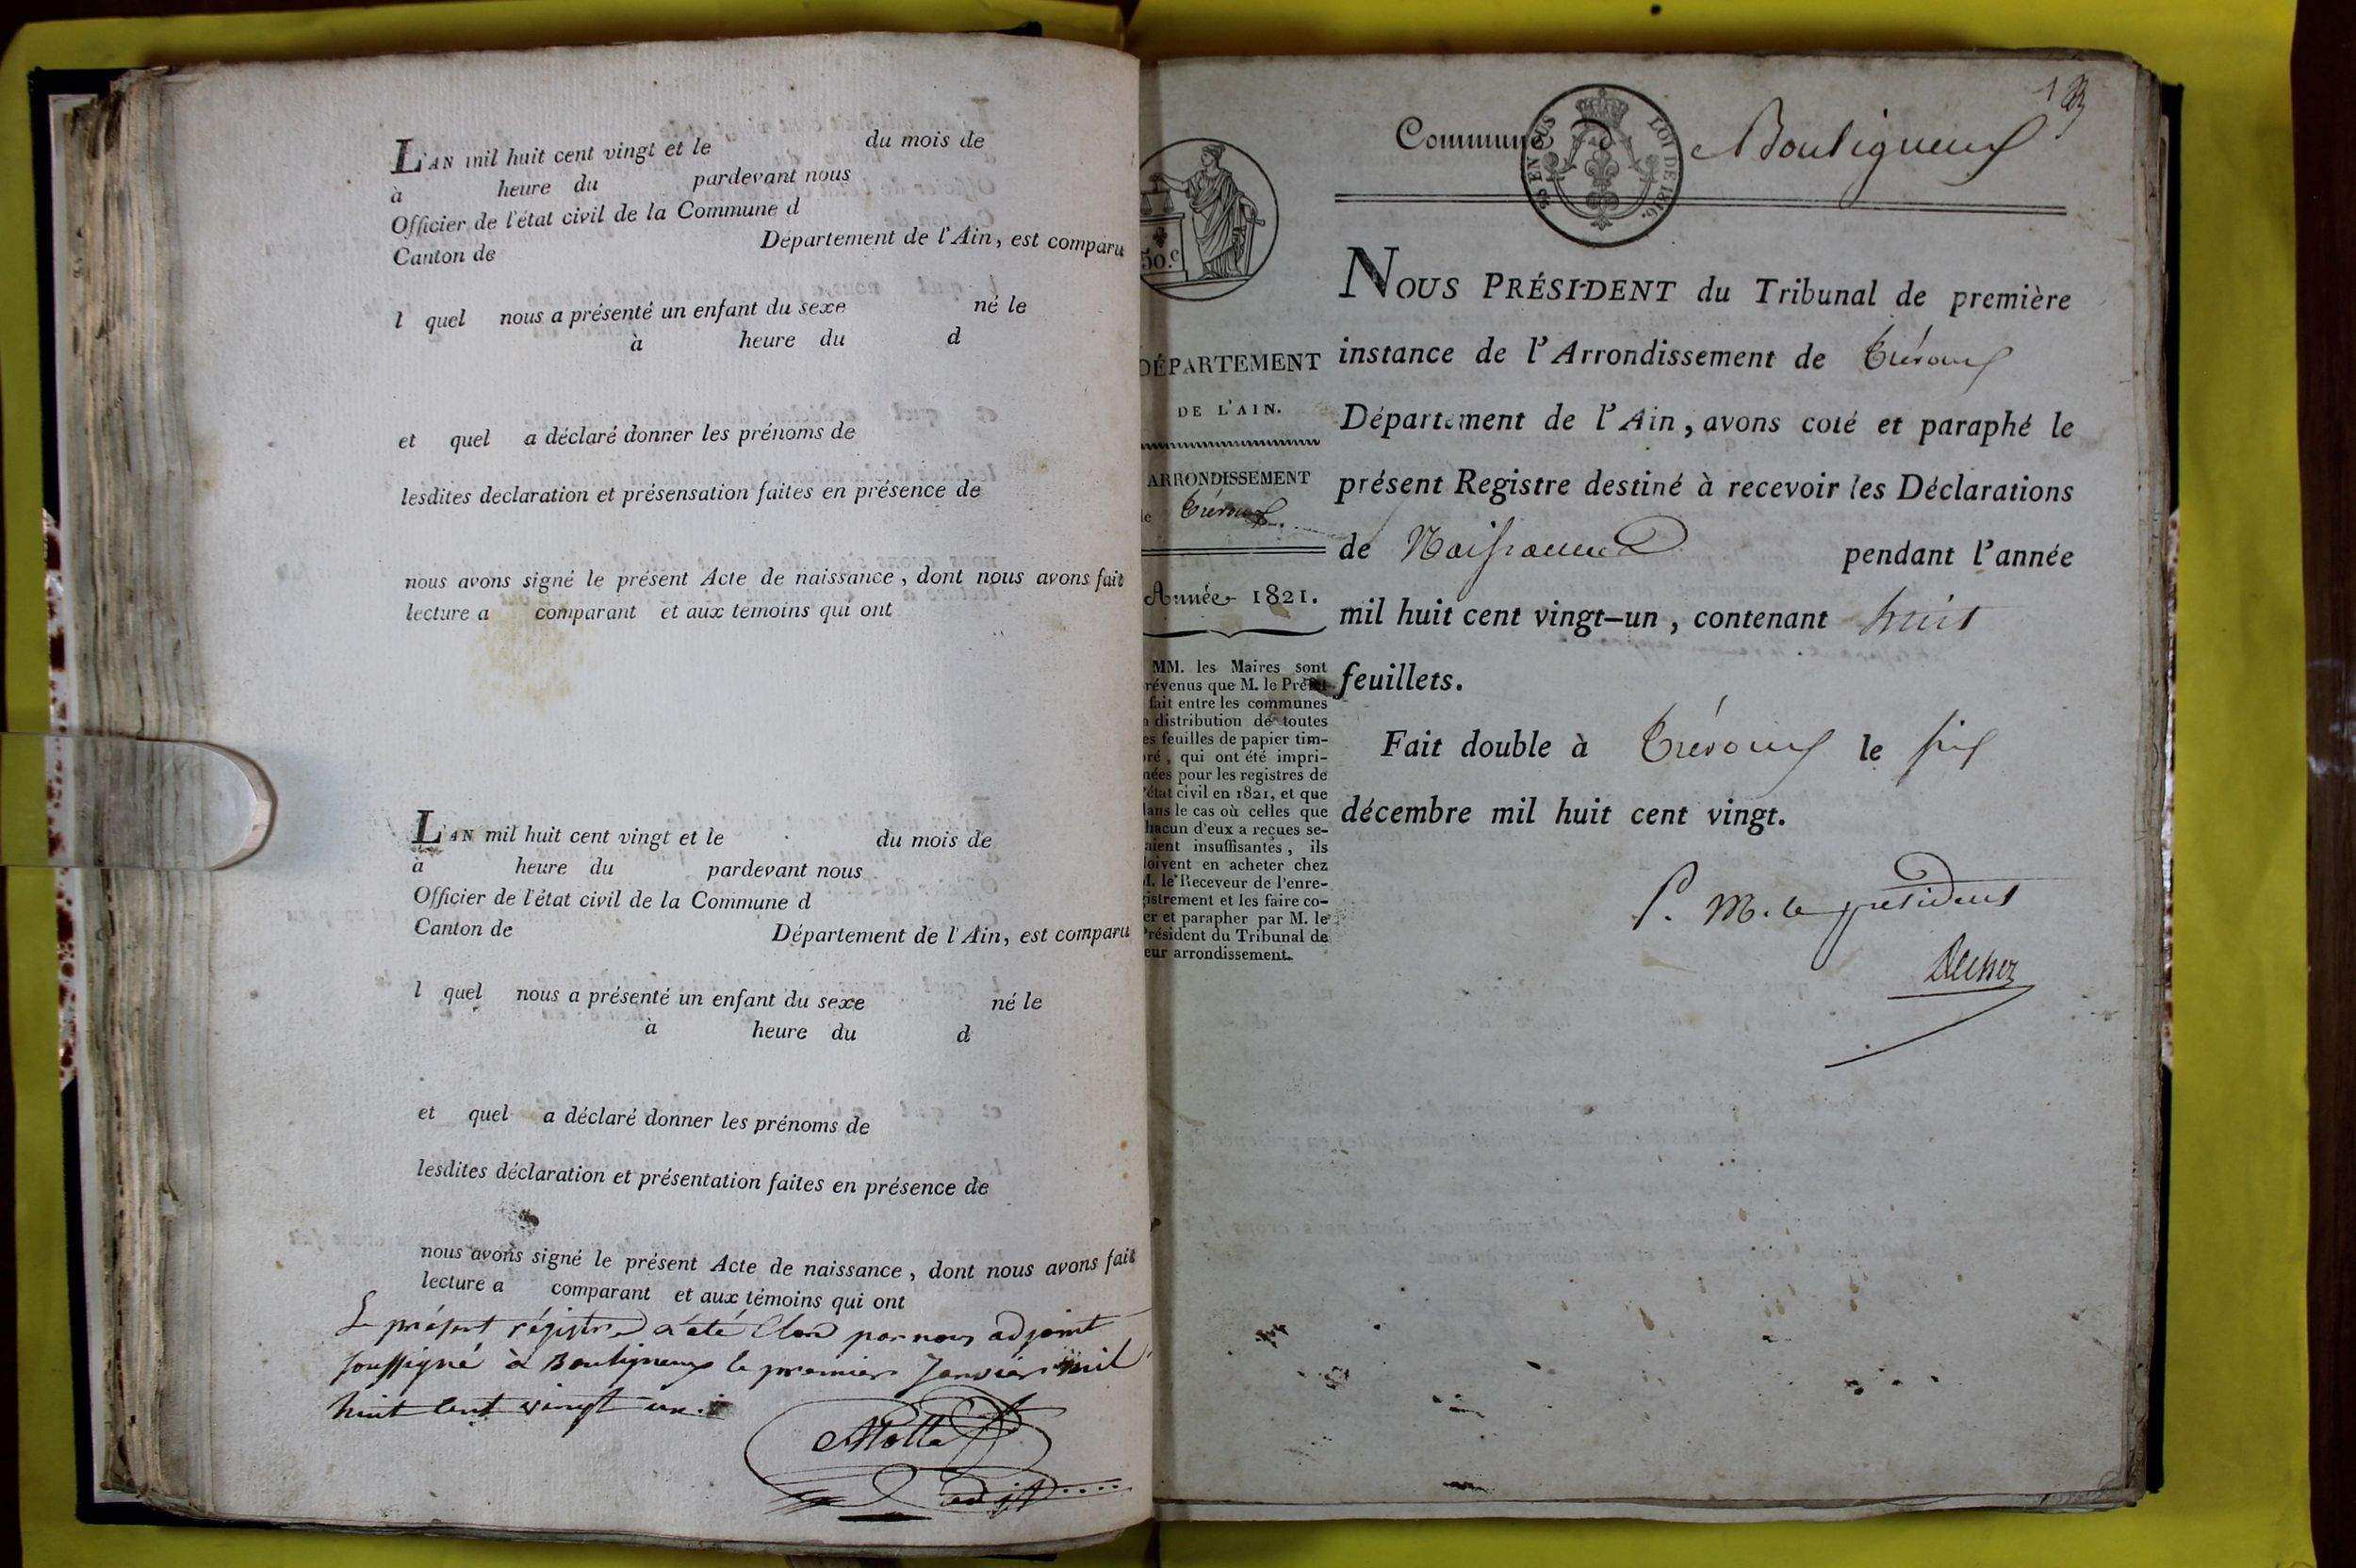 L'AN mil huit cent vingt et le du mois de
à heure du pardevant nous
Officier de l'état civil de la Commune d
Canton de Département de l'Ain, est comparu
l quel nous a présenté un enfant du sexe né le
à heure du d
et quel a déclaré donner les prénoms de
lesdites declaration et présensation faites en présence de
nous avons signé le présent Acte de naissance, dont nous avons fait
lecture a comparant et aux temoins qui ont
L'AN mil huit cent vingt et le du mois de
à heure du pardevant nous
Officier de l'état civil de la Commune d
Canton de Département de l'Ain, est comparu
l quel nous a présenté un enfant du sexe né le
à heure du d
et quel a déclaré donner les prénoms de
lesdites déclaration et présentation faites en présence de
nous avons signé le présent Acte de naissance, dont nous avons fait
lecture a comparant et aux témoins qui ont
Le présent régistre a été Clos par nous adjoint
soussigné à Bouligneux le premier Janvier mil
huit cent vingt un.
Motte
adjt
50.c
DÉPARTEMENT
DE L'AIN.
ARRONDISSEMENT
de Trévoux.
Année 1821.
MM. les Maires sont
révenus que M. le Préfet
fait entre les communes
a distribution de toutes
es feuilles de papier tim-
ré, qui ont été impri-
mées pour les registres de
'état civil en 1821, et que
dans le cas où celles que
hacun d'eux a reçues se-
aient insuffisantes, ils
doivent en acheter chez
M. le Receveur de l'enre-
gistrement et les faire co-
er et parapher par M. le
Président du Tribunal de
eur arrondissement.
Commune d Bouligneux
LOI DE 1816.
NOUS PRÉSIDENT du Tribunal de première
instance de l'Arrondissement de Trévoux
Département de l'Ain, avons coté et paraphé le
présent Registre destiné à recevoir les Déclarations
de Naissance pendant l'année
mil huit cent vingt-un, contenant huit
feuillets.
Fait double à Trévoux le six
décembre mil huit cent vingt.
P. M. le président